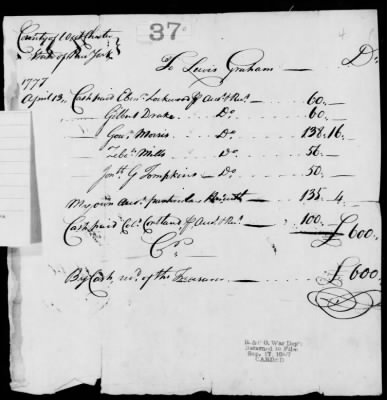 County of West Chester
State of New York
37
To Lewis Graham — Dr
1777
April 13, Cash paid Eben Lockwood pr Acct & Rt — 60 . —
Gilbert Drake — Do — 60 . —
Gouv Morris — Do — 138 . 16 .
Zebn Mills — Do — 56 . —
Jonth G Tompkins — Do — 50 . —
My own Acct particulars — 135 . 4
Cash paid Colo Cortland pr Acct & Rt — 100 . —
£600 .
Cr
By Cash, recd of the Treasurer — £600 .
R. & P. O. War Dept
Returned to File
Sep. 17, 1907
CARDED